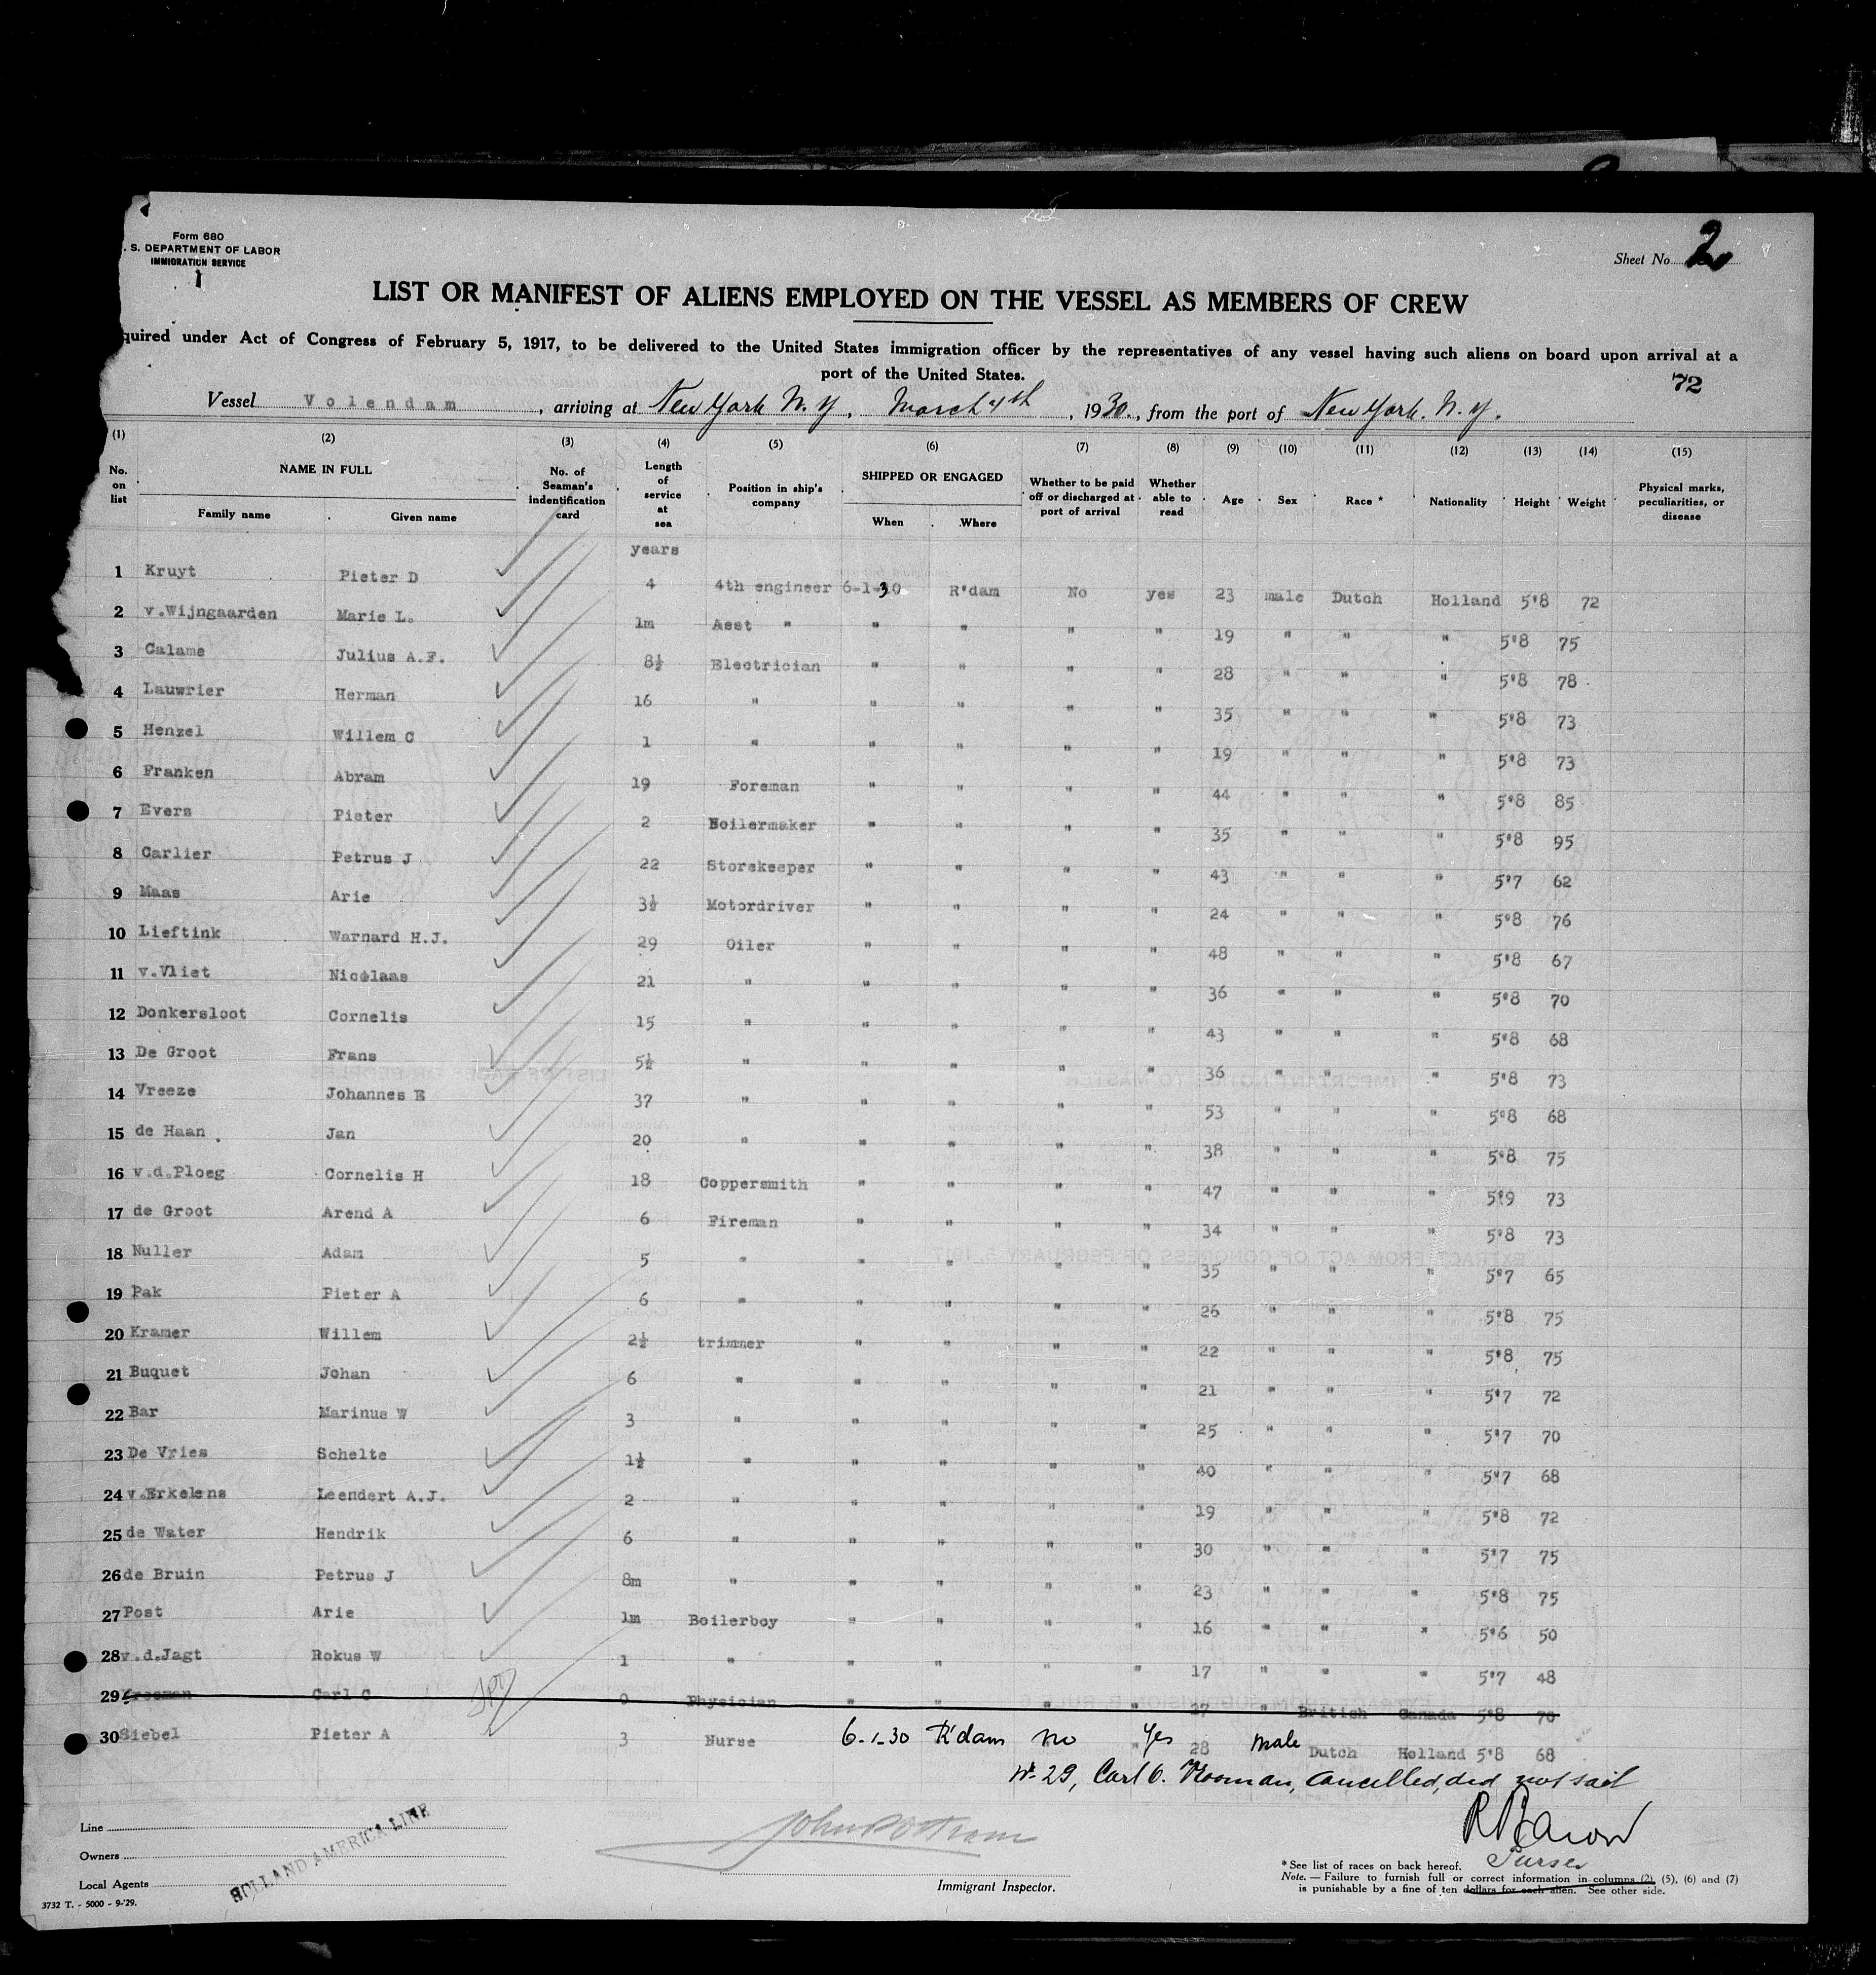 Form 680
. S. DEPARTMENT OF LABOR
IMMIGRATION SERVICE
1
Sheet No. 2
LIST OR MANIFEST OF ALIENS EMPLOYED ON THE VESSEL AS MEMBERS OF CREW
quired under Act of Congress of February 5, 1917, to be delivered to the United States immigration officer by the representatives of any vessel having such aliens on board upon arrival at a
port of the United States.
72
Vessel Volendam, arriving at New York N.Y., March 4th, 1930., from the port of New York. N.Y.
(1) (2) (3) (4) (5) (6) (7) (8) (9) (10) (11) (12) (13) (14) (15)
No. on list NAME IN FULL Family name Given name No. of Seaman's indentification card Length of service at sea Position in ship's company SHIPPED OR ENGAGED When Where Whether to be paid off or discharged at port of arrival Whether able to read Age Sex Race * Nationality Height Weight Physical marks, peculiarities, or disease
years
1 Kruyt Pieter D 4 4th engineer 6-1-30 R'dam No yes 23 male Dutch Holland 5'8 72
2 v.Wijngaarden Marie L. 1m Asst " " " " " 19 " " " 5'8 75
3 Calame Julius A.F. 8½ Electrician " " " " 28 " " " 5'8 78
4 Lauwrier Herman 16 " " " " " 35 " " " 5'8 73
5 Henzel Willem C 1 " " " " " 19 " " " 5'8 73
6 Franken Abram 19 Foreman " " " " 44 " " " 5'8 85
7 Evers Pieter 2 Boilermaker " " " " 35 " " " 5'8 95
8 Carlier Petrus J 22 Storekeeper " " " " 43 " " " 5'7 62
9 Maas Arie 3½ Motordriver " " " " 24 " " " 5'8 76
10 Lieftink Warnard H.J. 29 Oiler " " " " 48 " " " 5'8 67
11 v.Vliet Nicolaas 21 " " " " " 36 " " " 5'8 70
12 Donkersloot Cornelis 15 " " " " " 43 " " " 5'8 68
13 De Groot Frans 5½ " " " " " 36 " " " 5'8 73
14 Vreeze Johannes E 37 " " " " " 53 " " " 5'8 68
15 de Haan Jan 20 " " " " " 38 " " " 5'8 75
16 v.d.Ploeg Cornelis H 18 Coppersmith " " " " 47 " " " 5'9 73
17 de Groot Arend A 6 Fireman " " " " 34 " " " 5'8 73
18 Nuller Adam 5 " " " " " 35 " " " 5'7 65
19 Pak Pieter A 6 " " " " " 26 " " " 5'8 75
20 Kramer Willem 2½ trimmer " " " " 22 " " " 5'8 75
21 Buquet Johan 6 " " " " " 21 " " " 5'7 72
22 Bar Marinus W 3 " " " " " 25 " " " 5'7 70
23 De Vries Schelte 1½ " " " " " 40 " " " 5'7 68
24 v.Erkelens Leendert A.J. 2 " " " " " 19 " " " 5'8 72
25 de Water Hendrik 6 " " " " " 30 " " " 5'7 75
26 de Bruin Petrus J 8m " " " " " 23 " " " 5'8 75
27 Post Arie 1m Boilerboy " " " " 16 " " " 5'6 50
28 v.d.Jagt Rokus W 1 " " " " " 17 " " " 5'7 48
29 Carl C 0 Physician " " " " 27 " British Canada 5'8 70
30 Siebel Pieter A 3 Nurse 6-1-30 R'dam no Yes 28 male Dutch Holland 5'8 68
No 29, Carl C. cancelled, did not sail
Purser
Line
Owners
Local Agents
HOLLAND AMERICA LINE
Immigrant Inspector.
* See list of races on back hereof.
Note. — Failure to furnish full or correct information in columns (2), (5), (6) and (7)
is punishable by a fine of ten dollars for each alien. See other side.
3732 T. - 5000 - 9-'29.